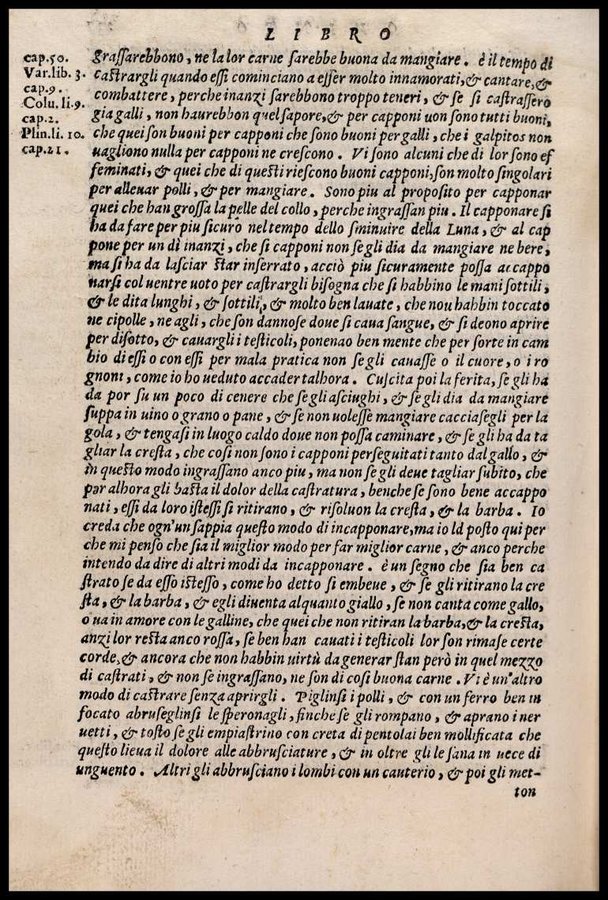 LIBRO
cap.50.
Var.lib. 3.
cap.9.
Colu.li.9.
cap.2.
Plin.li. 10.
cap.21.
grassarebbono, ne la lor carne sarebbe buona da mangiare. è il tempo di
castrargli quando essi cominciano a esser molto innamorati, & cantare, &
combattere, perche inanzi sarebbono troppo teneri, & se si castrassero
gia galli, non haurebbon quel sapore, & per capponi uon sono tutti buoni,
che quei son buoni per capponi che sono buoni per galli, che i galpitos non
uagliono nulla per capponi ne crescono. Vi sono alcuni che di lor sono ef
feminati, & quei che di questi riescono buoni capponi, son molto singolari
per alleuar polli, & per mangiare. Sono piu al proposito per capponar
quei che han grossa la pelle del collo, perche ingrassan piu. Il capponare si
ha da fare per piu sicuro nel tempo dello sminuire della Luna, & al cap
pone per un dì inanzi, che si capponi non se gli dia da mangiare ne bere,
ma si ha da lasciar star inserrato, acciò piu sicuramente possa accappo
narsi col uentre uoto per castrargli bisogna che si habbino le mani sottili,
& le dita lunghi, & sottili, & molto ben lauate, che nou habbin toccato
ne cipolle, ne agli, che son dannose doue si caua sangue, & si deono aprire
per disotto, & cauargli i testicoli, ponenao ben mente che per sorte in cam
bio di essi o con essi per mala pratica non se gli cauasse o il cuore, o i ro
gnoni, come io ho ueduto accader talhora. Cuscita poi la ferita, se gli ha
da por su un poco di cenere che se gli asciughi, & se gli dia da mangiare
suppa in uino o grano o pane, & se non uolesse mangiare cacciasegli per la
gola, & tengasi in luogo caldo doue non possa caminare, & se gli ha da ta
gliar la cresta, che cosi non sono i capponi perseguitati tanto dal gallo, &
in questo modo ingrassano anco piu, ma non se gli deue tagliar subito, che
per alhora gli basta il dolor della castratura, benche se sono bene accappo
nati, essi da loro istessi si ritirano, & risoluon la cresta, & la barba. Io
creda che ogn'un sappia questo modo di incapponare, ma io ld posto qui per
che mi penso che sia il miglior modo per far miglior carne, & anco perche
intendo da dire di altri modi da incapponare. è un segno che sia ben ca
strato se da esso istesso, come ho detto si embeue, & se gli ritirano la cre
sta, & la barba, & egli diuenta alquanto giallo, se non canta come gallo,
o ua in amore con le galline, che quei che non ritiran la barba, & la cresta,
anzi lor resta anco rossa, se ben han cauati i testicoli lor son rimase certe
corde, & ancora che non habbin uirtù da generar stan però in quel mezzo
di castrati, & non se ingrassano, ne son di cosi buona carne. Vi è un'altro
modo di castrare senza aprirgli. Piglinsi i polli, & con un ferro ben in
focato abruseglinsi le speronagli, finche se gli rompano, & aprano i ner
uetti, & tosto se gli empiastrino con creta di pentolai ben mollificata che
questo lieua il dolore alle abbrusciature, & in oltre gli le sana in uece di
unguento. Altri gli abbrusciano i lombi con un cauterio, & poi gli met-
ton